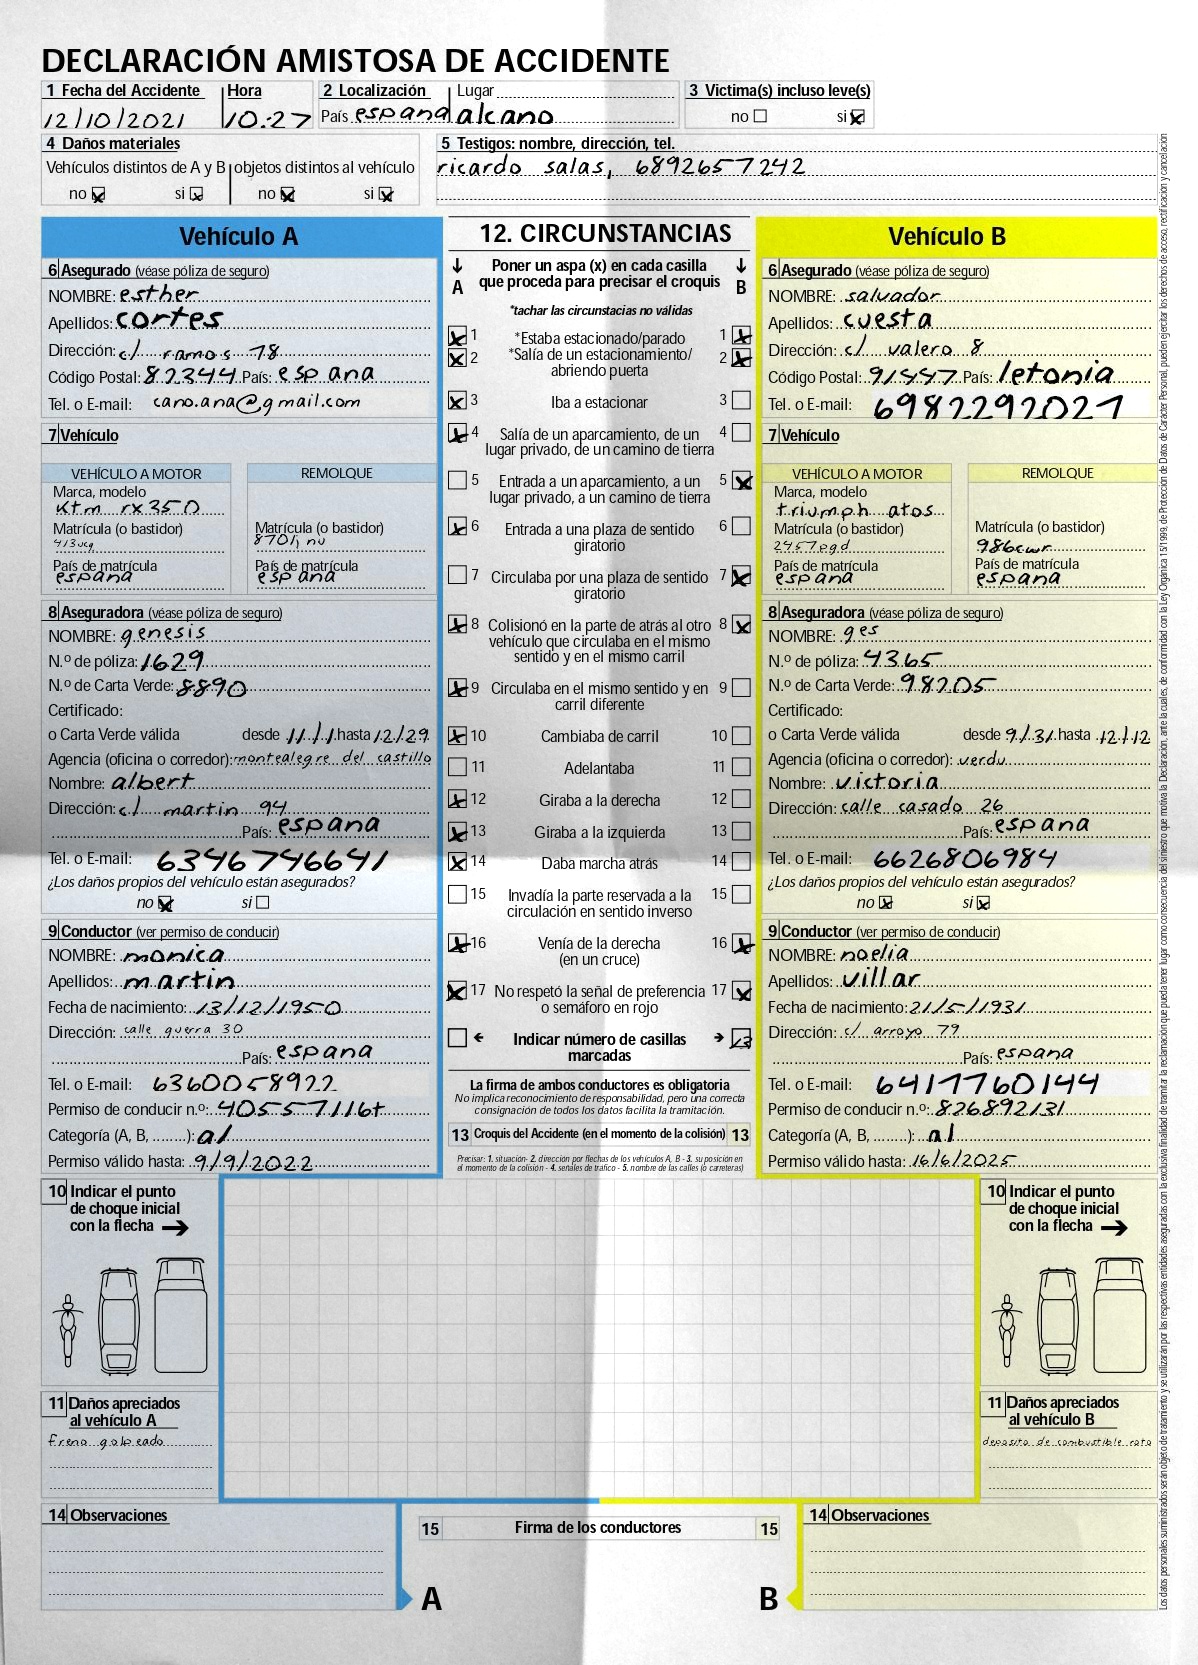 DECLARACIÓN AMISTOSA DE ACCIDENTE
1 Fecha del Accidente Hora 2 Localización Lugar 3 Victima(s) incluso leve(s)
12/10/2021 10:27 País espana alcano no si
4 Daños materiales 5 Testigos: nombre, dirección, tel.
Vehículos distintos de A y B objetos distintos al vehículo ricardo salas, 6892657242
no si no si
Vehículo A
6 Asegurado (véase póliza de seguro)
NOMBRE: esther
Apellidos: cortes
Dirección: c/ ramos 78
Código Postal: 82344 País: espana
Tel. o E-mail: cano.ana@gmail.com
7 Vehículo
VEHÍCULO A MOTOR REMOLQUE
Marca, modelo
ktm rx350
Matrícula (o bastidor) Matrícula (o bastidor)
413ucg
País de matrícula País de matrícula
espana espana
8 Aseguradora (véase póliza de seguro)
NOMBRE: genesis
N.º de póliza: 1629
N.º de Carta Verde: 8890
Certificado:
o Carta Verde válida desde 11/1 hasta 12/29
Agencia (oficina o corredor): montealegre del castillo
Nombre: albert
Dirección: c/ martin 94
País: espana
Tel. o E-mail: 6346746641
¿Los daños propios del vehículo están asegurados?
no si
9 Conductor (ver permiso de conducir)
NOMBRE: monica
Apellidos: martin
Fecha de nacimiento: 13/12/1950
Dirección: calle guerra 30
País: espana
Tel. o E-mail: 6360058922
Permiso de conducir n.º: 40557116t
Categoría (A, B, ........): a1
Permiso válido hasta: 9/9/2022
10 Indicar el punto
de choque inicial
con la flecha
11 Daños apreciados
al vehículo A
freno golpeado
14 Observaciones
12. CIRCUNSTANCIAS
Poner un aspa (x) en cada casilla
A que proceda para precisar el croquis B
*tachar las circunstacias no válidas
1 *Estaba estacionado/parado 1
2 *Salía de un estacionamiento/ 2
abriendo puerta
3 Iba a estacionar 3
4 Salía de un aparcamiento, de un 4
lugar privado, de un camino de tierra
5 Entrada a un aparcamiento, a un 5
lugar privado, a un camino de tierra
6 Entrada a una plaza de sentido 6
giratorio
7 Circulaba por una plaza de sentido 7
giratorio
8 Colisionó en la parte de atrás al otro 8
vehículo que circulaba en el mismo
sentido y en el mismo carril
9 Circulaba en el mismo sentido y en 9
carril diferente
10 Cambiaba de carril 10
11 Adelantaba 11
12 Giraba a la derecha 12
13 Giraba a la izquierda 13
14 Daba marcha atrás 14
15 Invadía la parte reservada a la 15
circulación en sentido inverso
16 Venía de la derecha 16
(en un cruce)
17 No respetó la señal de preferencia 17
o semáforo en rojo
Indicar número de casillas 13
marcadas
La firma de ambos conductores es obligatoria
No implica reconocimiento de responsabilidad, pero una correcta
consignación de todos los datos facilita la tramitación.
13 Croquis del Accidente (en el momento de la colisión) 13
Precisar: 1. situación- 2. dirección por flechas de los vehículos A, B - 3. su posición en
el momento de la colisión - 4. señales de tráfico - 5. nombre de las calles (o carreteras)
15 Firma de los conductores 15
A B
Vehículo B
6 Asegurado (véase póliza de seguro)
NOMBRE: salvador
Apellidos: cuesta
Dirección: c/ valero 8
Código Postal: 91557 País: letonia
Tel. o E-mail: 6982292021
7 Vehículo
VEHÍCULO A MOTOR REMOLQUE
Marca, modelo
triumph atos
Matrícula (o bastidor) Matrícula (o bastidor)
2457pgd 986cwr
País de matrícula País de matrícula
espana espana
8 Aseguradora (véase póliza de seguro)
NOMBRE: ges
N.º de póliza: 4365
N.º de Carta Verde: 98205
Certificado:
o Carta Verde válida desde 9/31 hasta 12/12
Agencia (oficina o corredor): verdu
Nombre: victoria
Dirección: calle casado 26
País: espana
Tel. o E-mail: 6626806984
¿Los daños propios del vehículo están asegurados?
no si
9 Conductor (ver permiso de conducir)
NOMBRE: noelia
Apellidos: villar
Fecha de nacimiento: 21/5/1931
Dirección: c/ arroyo 79
País: espana
Tel. o E-mail: 6417760144
Permiso de conducir n.º: 82689213l
Categoría (A, B, ........): a1
Permiso válido hasta: 16/6/2025
10 Indicar el punto
de choque inicial
con la flecha
11 Daños apreciados
al vehículo B
deposito de combustible roto
14 Observaciones